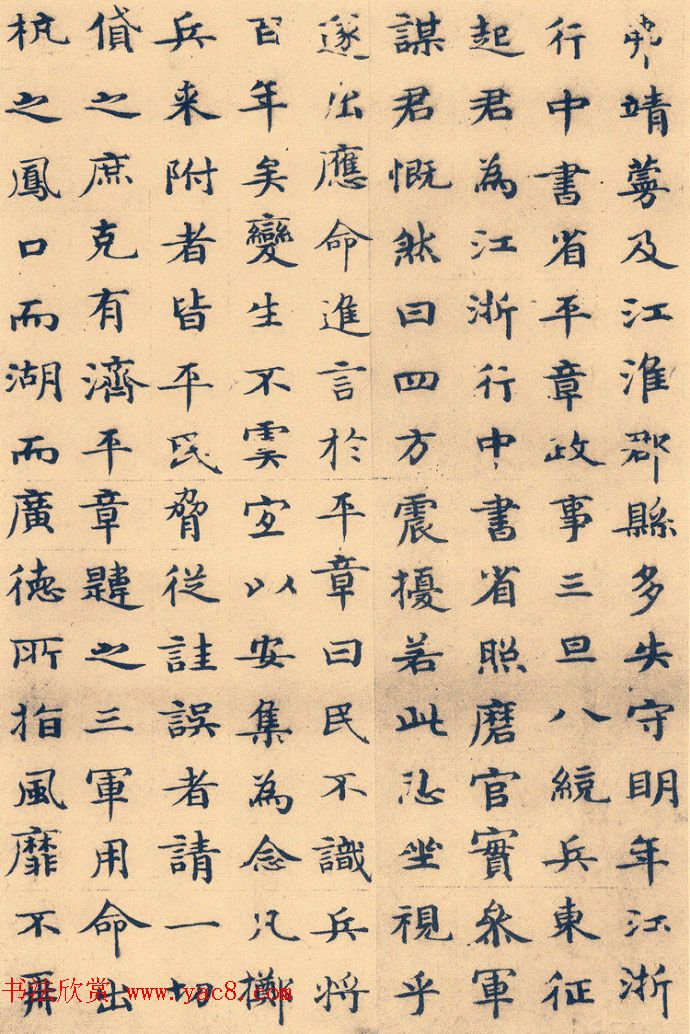 靖蔓及江淮郡縣多失守明年江浙
行中書省平章政事三旦八統兵東征
起君為江浙行中書省照磨官實叅軍
謀君慨然曰四方震擾若此忍坐視乎
遂出應命進言於平章曰民不識兵將
百年矣變生不虞宜以安集為念凡擲
兵来附者皆平民脅從詿誤者請一切
貸之庶克有濟平章韙之三軍用命出
杭之鳳口而湖而廣德所指風靡不再
书法欣赏 www.yac8.com